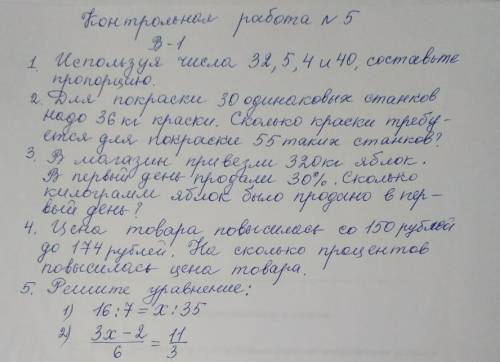 Контрольная работа N 5
В-1
1. Используя числа 32, 5, 4 и 40, составьте
пропорцию.
2. Для покраски 30 одинаковых станков
надо 36 кг краски. Сколько краски требу-
ется для покраски 55 таких станков?
3. В магазин привезли 320 кг яблок.
В первый день продали 30%. Сколько
килограмм яблок было продано в пер-
вый день?
4. Цена товара повысилась со 150 рублей
до 174 рублей. На сколько процентов
повысилась цена товара.
5. Решите уравнение:
1) 16 : 7 = x : 35
2) (3x - 2)/6 = 11/3